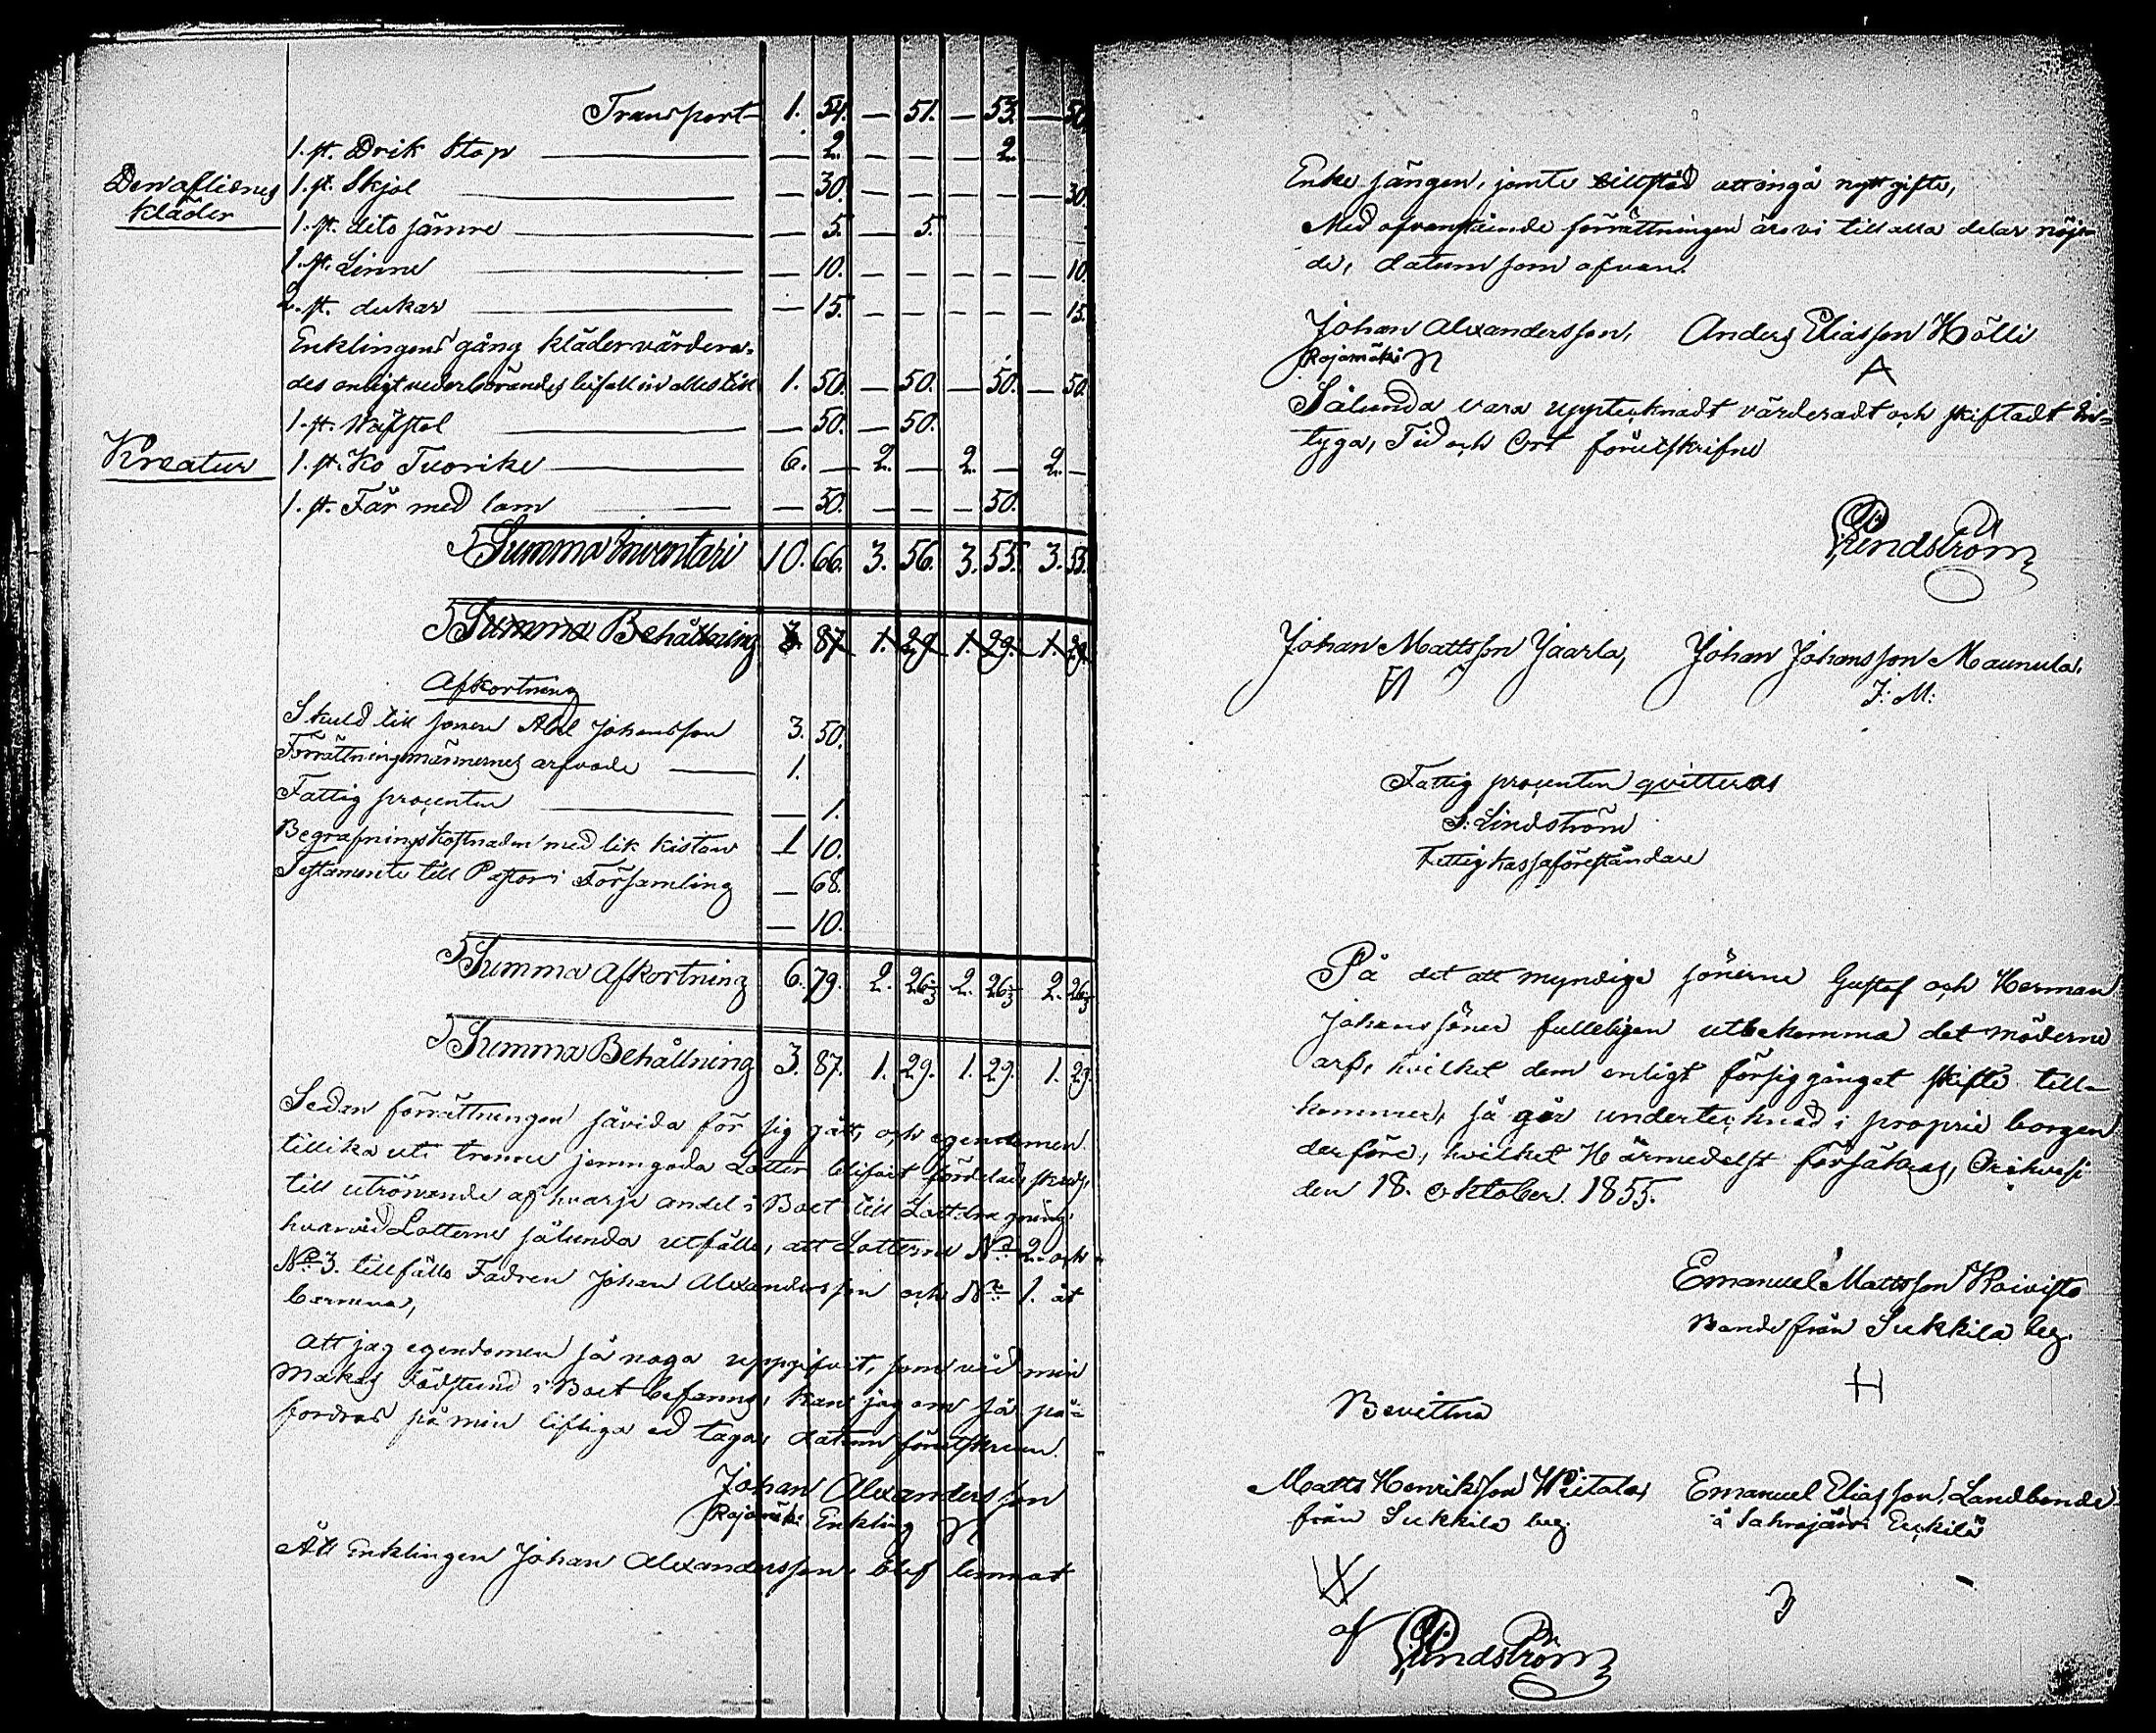 Transport 1. 54. — 51. — 53. — 50.
1. st. Drik Stop — 2. — — — 2.
Den aflidnes 1. st. Skjol — 30. — — — — — 30.
kläder 1. st. dito sämre — 5. — 5.
1. st. Linne — 10. — — — — — 10.
2. st. dukar — 15. — — — — — 15.
Enklingens gång kläder värdera-
des enligt vederbörandes bifall in alles till 1. 50. — 50. — 50. — 50.
1. st. Wäfstol — 50. — 50.
Kreatur 1. st. Ko Tuorike 6. — 2. — 2. — 2. —
1. st. Får med lam — 50. — — — 50.
Summa Inventari 10. 66. 3. 56. 3. 55. 3. 55.
Summa Behållning 3. 87. 1. 29. 1. 29. 1. 29.
Afkortning
Skuld till sonen Abel Johansson 3. 50.
Förrättningsmännernes arfvode 1.
Fattig procenten — 1.
Begrafningskostnaden med lik kistan 1 10.
Testamente till Pastor i Församling — 68.
— 10.
Summa Afkortning 6. 79. 2. 26⅓ 2. 26⅓ 2. 26⅓
Summa Behållning 3. 87. 1. 29. 1. 29. 1. 29.
Sedan förrättningen såvida för sig gått, och egendomen
tillika uti trenne jemngoda Lotter blifvit fördelad, skreds
till utrönande af hvarje andel i Boet till Lottdragning,
hvarvid Lotterne sålunda utfälla, att Lotterne No 2. och
No 3. tillfälls Fadren Johan Alexandersson och No 1. åt
barnena,
Att jag egendomen så noga uppgifvit, som vid min
Makas dödstund i Boet befanns, kan jag om så på-
fordras på min lifliga ed taga, datum förutskrven.
Johan Alexandersson
Rajamäki Enkling
Att Enklingen Johan Alexandersson blef lemnat
Enke sängen, jämte tillstånd att ingå nytt gifte,
Med ofvanstående förrättningen äro vi till alla delar nöjan-
de, datum som ofvan.
Johan Alexandersson, Anders Eliasson Hölli
Rajamäki
Sålunda vara upptecknadt värderadt och skiftadt in-
tyga, Tid och Ort förutskrifne
Lindström
Johan Mattsson Yaarla, Johan Johansson Maunula.
J: M:
Fattig procenten qvitteras
S: Lindström
Fattigkassaföreståndare
På det att myndige sönerne Gustaf och Herman
Johans söner fulleligen utbekomma det möderne
arf, hvilket dem enligt försiggånget skifte till-
kommer, så går undertecknad i proprie borgen
derföre, hvilket Härmedelst försäkras, Orihvesi
den 18. oktober 1855.
Emanuel Mattsson Koivisto
Bonde från Sukkila by.
H
Bevittna
Matts Henriksson Wietala, Emanuel Eliasson, Landbonde
från Sukkila by. å Sahrajärvi Eckilä
af Lindström